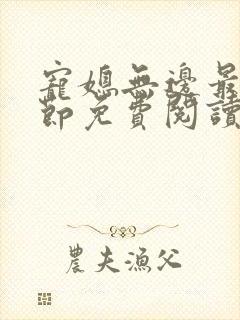 寵媳無邊最
節免費閱讀
農夫漁父